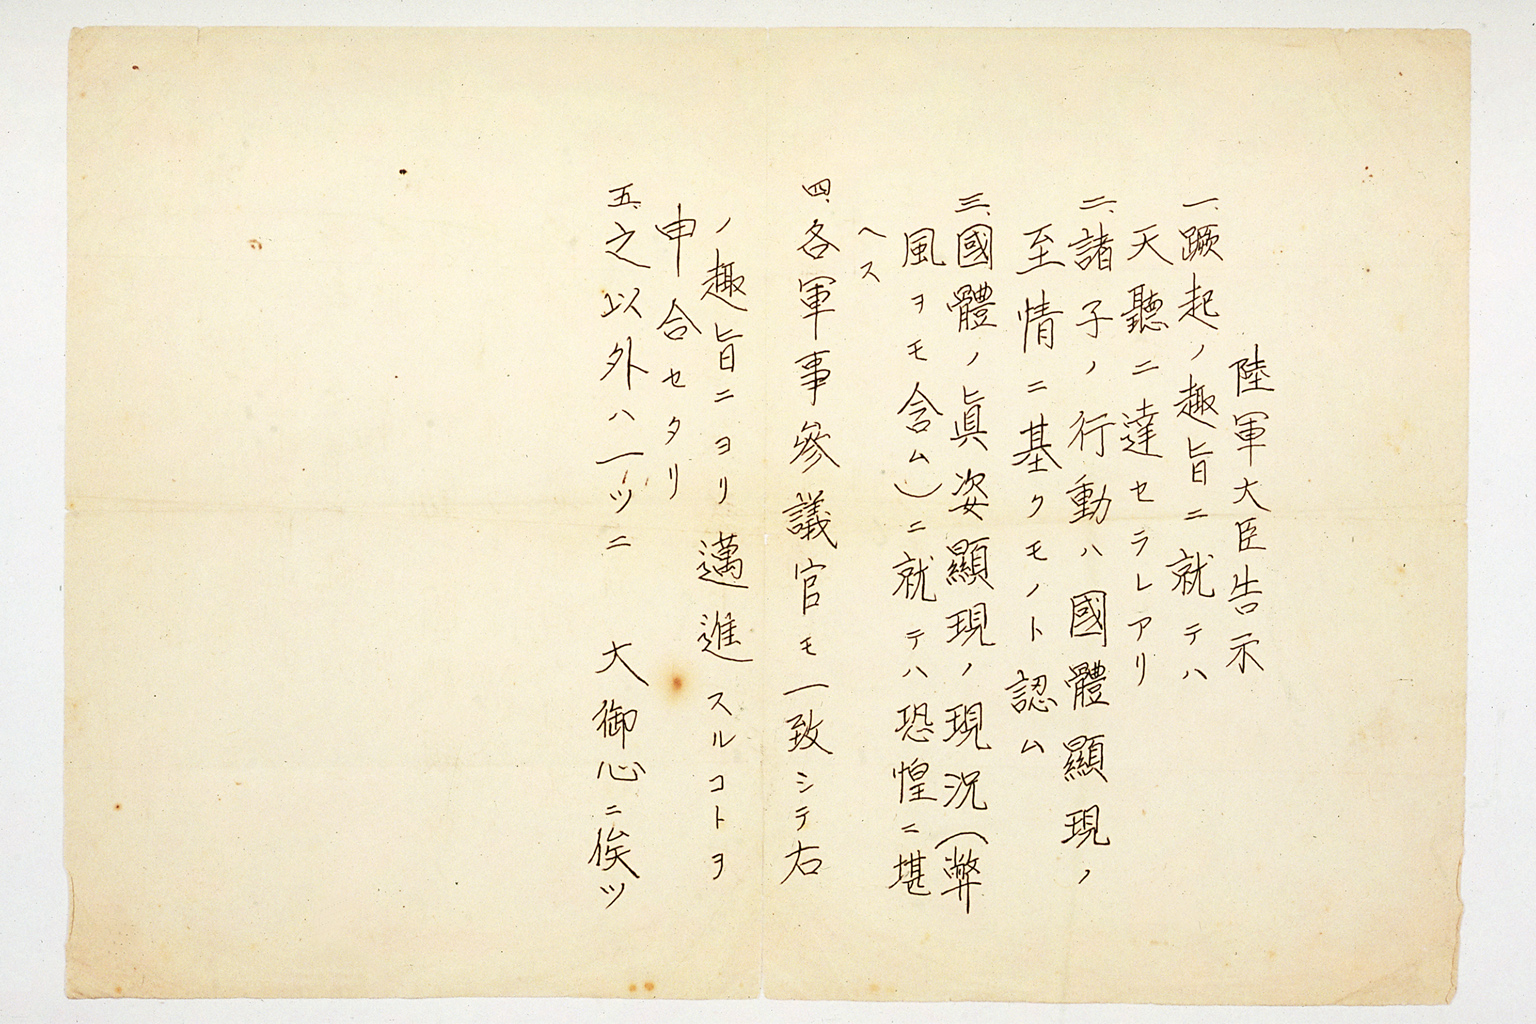 陸軍大臣告示
一、蹶起ノ趣旨ニ就テハ
天聽ニ達セラレアリ
二、諸子ノ行動ハ國體顯現ノ
至情ニ基クモノト認ム
三、國體ノ眞姿顯現ノ現況(弊
風ヲモ含ム)ニ就テハ恐惶ニ堪
ヘス
四、各軍事參議官モ一致シテ右
ノ趣旨ニヨリ邁進スルコトヲ
申合セタリ
五、之以外ハ一ツニ 大御心ニ俟ツ